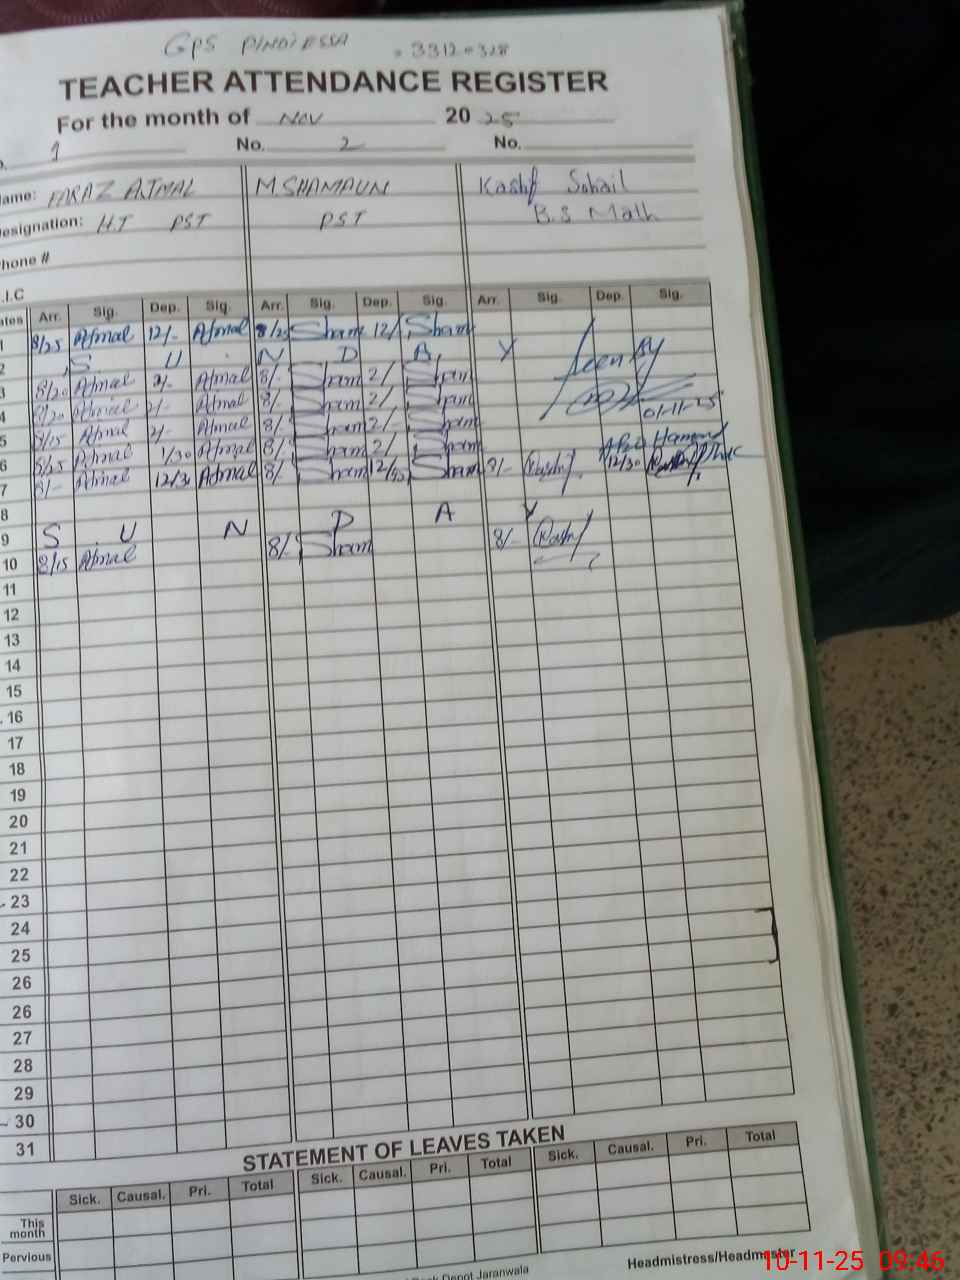 GPS PINDI ESSA
TEACHER ATTENDANCE REGISTER
For the month of Nov 2025
1 No. 2 No.
ame: FARAZ AJMAL M.SHAMAUN Kashif Sohail
esignation: H.T PST PST B.S Math
hone #
.I.C
ates Arr. Sig. Dep. Sig. Arr. Sig. Dep. Sig. Arr. Sig. Dep. Sig.
1 8/25 Ajmal 12/- Ajmal 8/25 Sham 12/ Sham
2 S U N D A Y Seen By
3 8/20 Ajmal 2/- Ajmal 8/- Sham 2/ Sham
4 8/20 Ajmal 2/- Ajmal 8/- Sham 2/- Sham 01-11-25
5 8/15 Ajmal 2/- Ajmal 8/- Sham 2/- Sham
6 8/25 Ajmal 1/30 Ajmal 8/- Sham 2/ Sham
7 8/- Ajmal 12/30 Ajmal 8/- Sham 12/30 Sham 8/- Kashif 12/30
8
9 S U N D A Y
10 8/15 Ajmal 8/- Sham 8/- Kashif
11
12
13
14
15
16
17
18
19
20
21
22
23
24
25
26
26
27
28
29
30
31
STATEMENT OF LEAVES TAKEN
Sick. Causal. Pri. Total Sick. Causal. Pri. Total Sick. Causal. Pri. Total
This
month
Pervious
Depot Jaranwala Headmistress/Headmaster
10-11-25 09:46